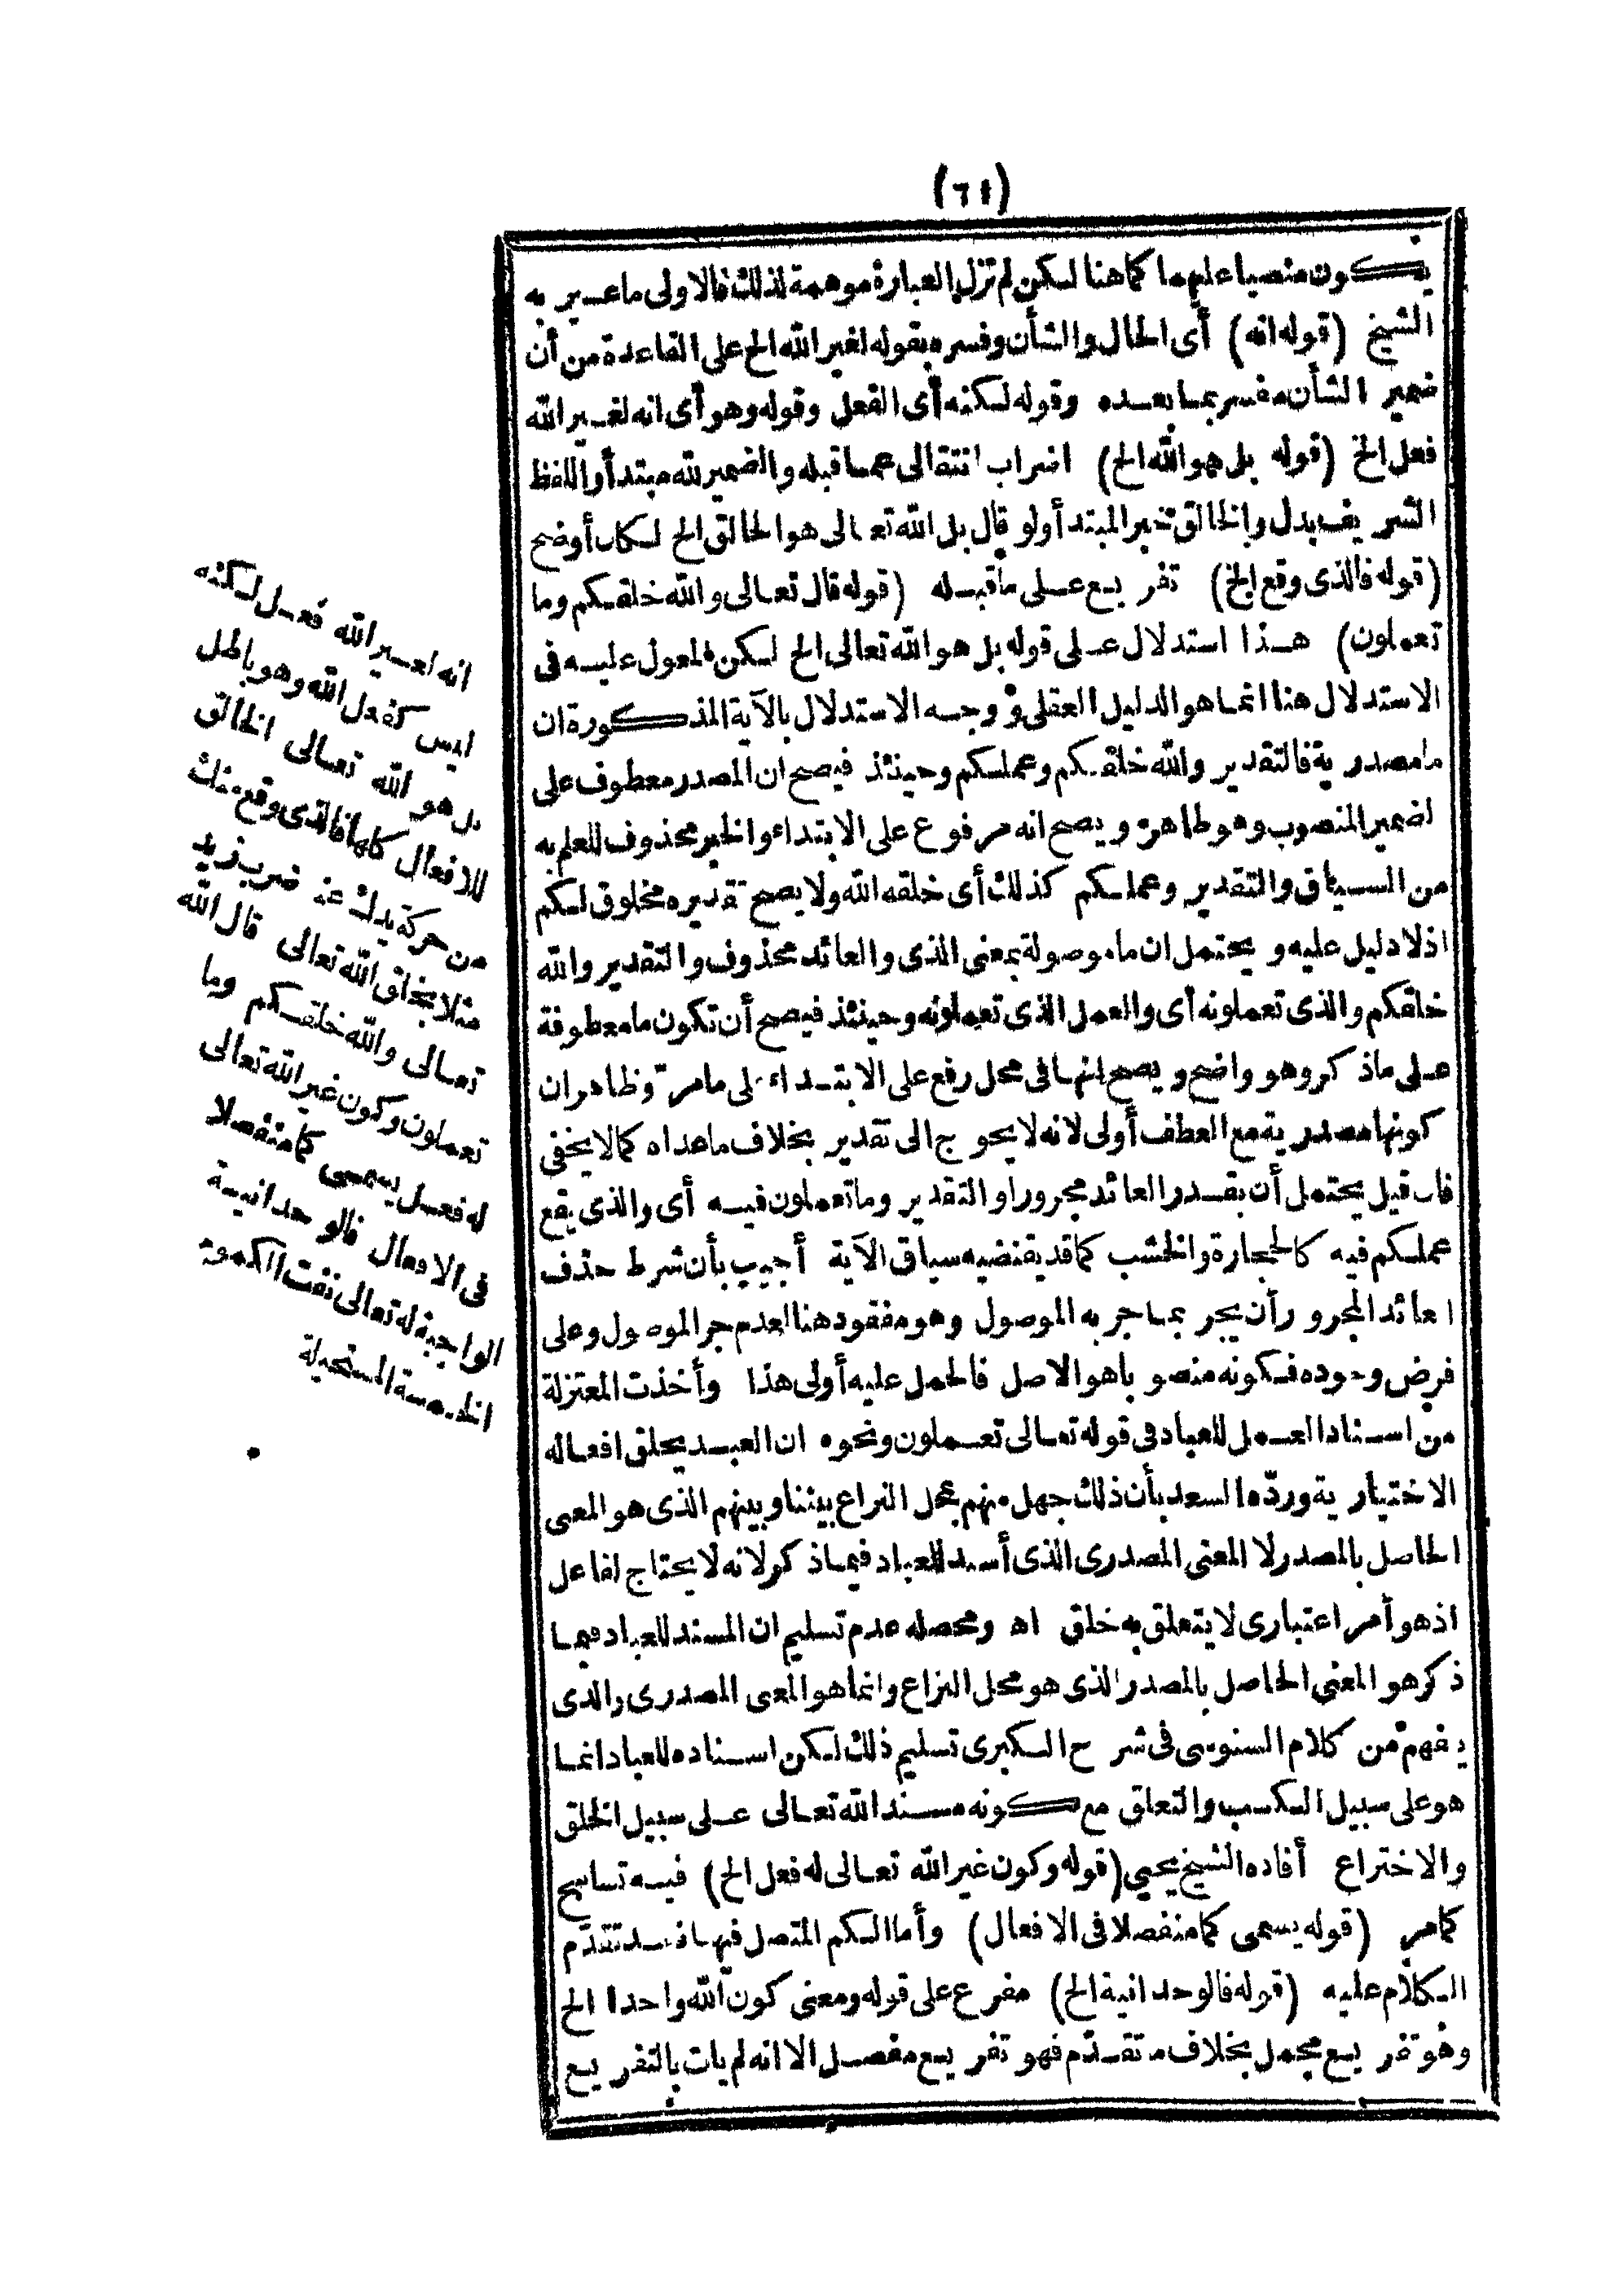 (٦١)
يكون منصبا عليهما كما هنا لكن لم تزل العبارة موهمة لذلك فالاولى ما عبر به
الشيخ (قوله انه) أى الحال والشأن وفسره بقوله لغير الله الخ على القاعدة من أن
ضمير الشأن مفسر بما بعده وقوله لكنه أى الفعل وقوله وهو أى انه لغير الله
فعل الخ (قوله بل هو الله الخ) اضراب انتقالى عما قبله والضمير لله مبتدأ واللفظ
الشريف بدل والخالق خبر المبتدأ ولو قال بل الله تعالى هو الخالق الخ لكان أوضح
(قوله فالذى وقع الخ) تفريع على ما قبله (قوله قال تعالى والله خلقكم وما
تعملون) هذا استدلال على قوله بل هو الله تعالى الخ لكن المعول عليه فى
الاستدلال هنا انما هو الدليل العقلى ووجه الاستدلال بالآية المذكورة ان
ما مصدرية فالتقدير والله خلقكم وعملكم وحينئذ فيصح ان المصدر معطوف على
لضمير المنصوب وهو ظاهر ويصح انه مرفوع على الابتداء والخبر محذوف للعلم به
من السياق والتقدير وعملكم كذلك أى خلقه الله ولا يصح تقديره مخلوق لكم
اذ لا دليل عليه ويحتمل ان ما موصولة بمعنى الذى والعائد محذوف والتقدير والله
خلقكم والذى تعملونه أى والعمل الذى تعملونه وحينئذ فيصح أن تكون ما معطوفة
على ما ذكر وهو واضح ويصح انها فى محل رفع على الابتداء على ما مر وظاهر ان
كونها مصدرية مع العطف أولى لانه لا يحوج الى تقدير بخلاف ما عداه كما لا يخفى
فان قيل يحتمل أن يقدر العائد مجرورا والتقدير وما تعملون فيه أى والذى يقع
عملكم فيه كالحجارة والخشب كما قد يقتضيه سياق الآية أجيب بأن شرط حذف
العائد المجرور أن يجر بما جر به الموصول وهو مفقود هنا لعدم جر الموصول وعلى
فرض وجوده فكونه منصوبا هو الاصل فالحمل عليه أولى هذا وأخذت المعتزلة
من اسناد العمل للعباد فى قوله تعالى تعملون ونحوه ان العبد يخلق افعاله
الاختيارية وردّه السعد بأن ذلك جهل منهم بمحل النزاع بيننا وبينهم الذى هو المعنى
الحاصل بالمصدر لا المعنى المصدرى الذى أسند للعباد فيما ذكر لانه لا يحتاج لفاعل
اذ هو أمر اعتبارى لا يتعلق به خلق اه ومحصله عدم تسليم ان المسند للعباد فيما
ذكر هو المعنى الحاصل بالمصدر الذى هو محل النزاع وانما هو المعنى المصدرى والذى
يفهم من كلام السنوسى فى شرح الكبرى تسليم ذلك لكن اسناده للعباد انما
هو على سبيل الكسب والتعلق مع كونه مسندا لله تعالى على سبيل الخلق
والاختراع أفاده الشيخ يحيى (قوله وكون غير الله تعالى له فعل الخ) فيه تسامح
كما مر (قوله يسمى كما منفصلا فى الافعال) وأما الكم المتصل فيها فقد تقدّم
الكلام عليه (قوله فالوحدانية الخ) مفرع على قوله ومعنى كون الله واحدا الخ
وهو تفريع مجمل بخلاف ما تقدّم فهو تفريع مفصل الا انه لم يات بالتفريع
انه لغير الله فعل لكنه
ليس كفعل الله وهو باطل
بل هو الله تعالى الخالق
للافعال كلها فالذى وقع منك
من حركة يدك عند ضرب زيد
مثلا بخلق الله تعالى قال الله
تعالى والله خلقكم وما
تعملون وكون غير الله تعالى
له فعل يسمى كما منفصلا
فى الافعال فالوحدانية
الواجبة له تعالى نفت الكموم
الخمسة المستحيلة